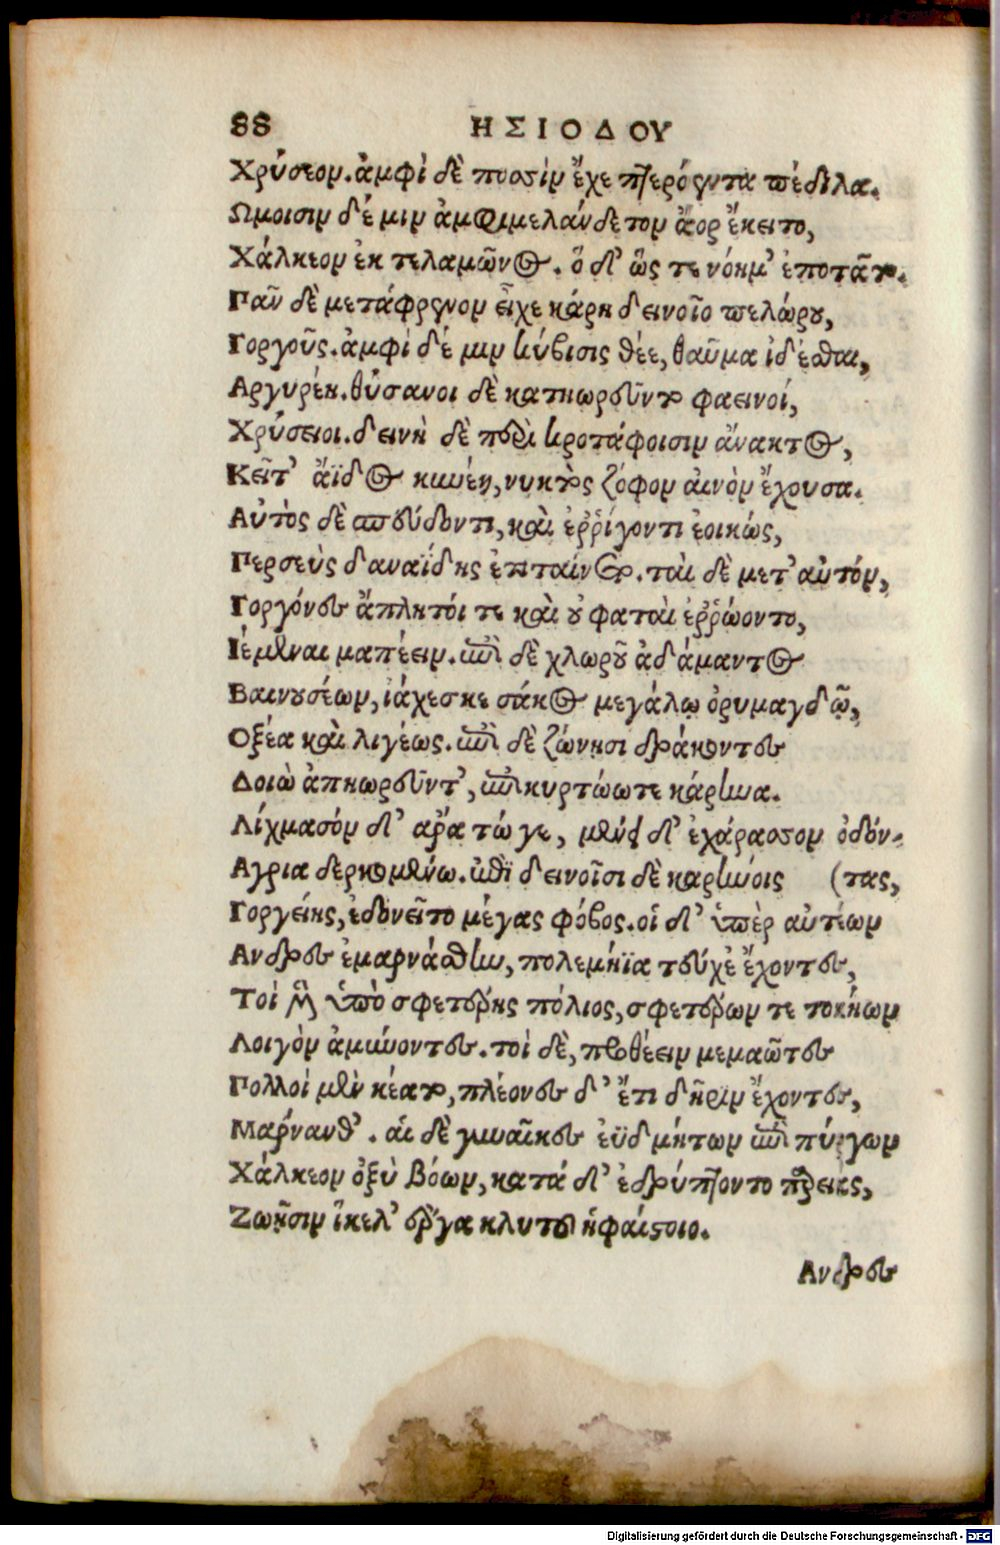 88 ΗΣΙΟΔΟΥ
Χρύσεον. ἀμφὶ δὲ ποσσὶν ἔχε πτερόεντα πέδιλα.
Ωμοισιν δέ μιν ἀμφιμελάνδετον ἄορ ἔκειτο,
Χάλκεον ἐκ τελαμῶνος. ὅ δ' ὥς τε νόημ' ἐποτᾶτο.
Παν δὲ μετάφρενον εἶχε κάρη δεινοῖο πελώρου,
Γοργοῦς. ἀμφὶ δέ μιν κίβισις θέε, θαῦμα ἰδέσθαι,
Αργυρέη. θύσανοι δὲ κατηωροῦντο φαεινοί,
Χρύσειοι. δεινὴ δὲ περὶ κροτάφοισιν ἄνακτος,
Κεῖτ' ἄϊδος κυνέη, νυκτὸς ζόφον αἰνὸν ἔχουσα.
Αὐτὸς δὲ σπεύδοντι, καὶ ἐρῥίγοντι ἐοικώς,
Περσεὺς δαναΐδης ἐτιταίνετο. ταὶ δὲ μετ' αὐτόν,
Γοργόνες ἄπλητόι τε καὶ οὐ φαταὶ ἐῤῥώοντο,
Ιέμεναι μαπέειν. ἐπὶ δὲ χλωροῦ ἀδάμαντος
Βαινουσέων, ἰάχεσκε σάκος μεγάλῳ ὀρυμαγδῷ,
Οξέα καὶ λιγέως. ἐπὶ δὲ ζώνησι δράκοντες
Δοιὼ ἀπηωροῦντ', ἐπικυρτώωτε κάρηνα.
Λίχμασόν δ' ἄρα τώ γε, μένει δ' ἐχάρασσον ὀδόν-
Αγρια δερκομένω. ἐπὶ δεινοῖσι δὲ καρήνοις (τας,
Γοργείης, ἐδονεῖτο μέγας φόβος. οἱ δ' ὑπὲρ αὐτέων
Ανδρες ἐμαρνάσθην, πολεμήϊα τεύχἐ ἔχοντες,
Τοὶ μὲν ὑπὸ σφετέρης πόλιος, σφετέρων τε τοκήων
Λοιγὸν ἀμύνοντες. τοὶ δὲ, πραθέειν μεμαῶτες
Πολλοὶ μὲν κέατο, πλέονες δ' ἔτι δῆριν ἔχοντες,
Μάρνανθ'. αἱ δὲ γυναῖκες ἐϋδμήτων ἐπὶ πύργων
Χάλκεον ὀξὺ βόων, κατά δ' ἐδρύπτοντο παρειάς,
Ζωῆσιν ἴκελ' ἔργα κλυτοῦ ἡφαίστοιο.
Ανδρες
Digitalisierung gefördert durch die Deutsche Forschungsgemeinschaft - DFG